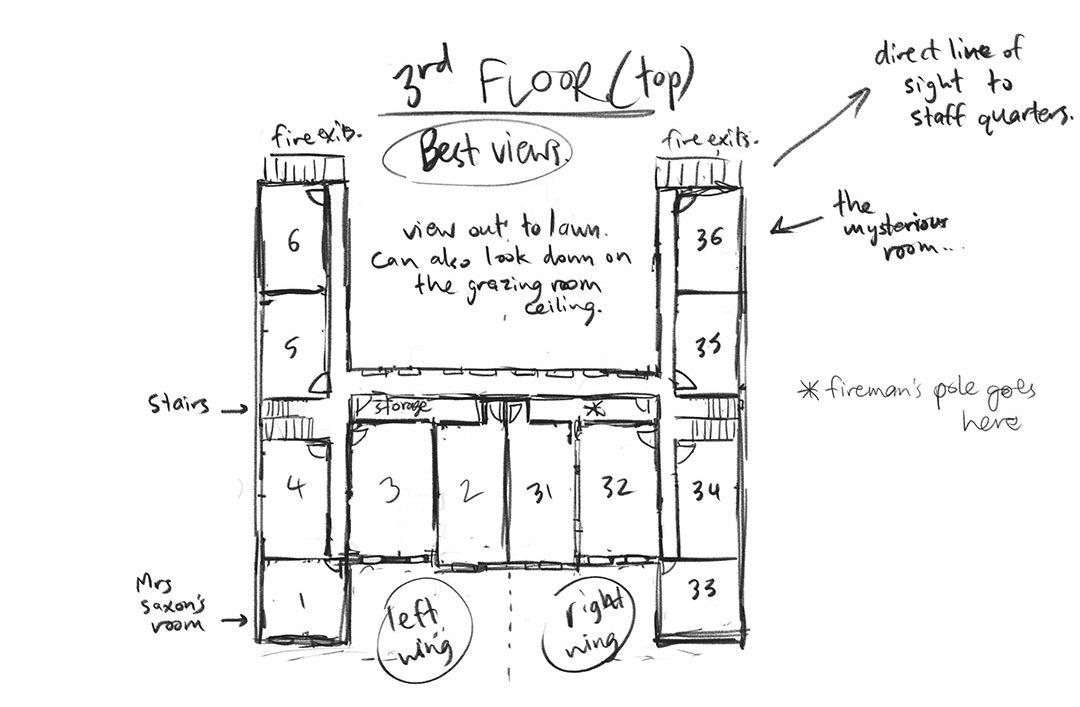 3rd FLOOR (top)
Best views.
direct line of
sight to
staff quarters.
fire exits.
fire exits.
view out to lawn.
can also look down on
the grazing room
ceiling.
the
mysterious
room...
6
36
5
35
Stairs
storage
*
* fireman's pole goes
here
4
3
2
31
32
34
Mrs
Saxon's
room
1
33
left
wing
right
wing